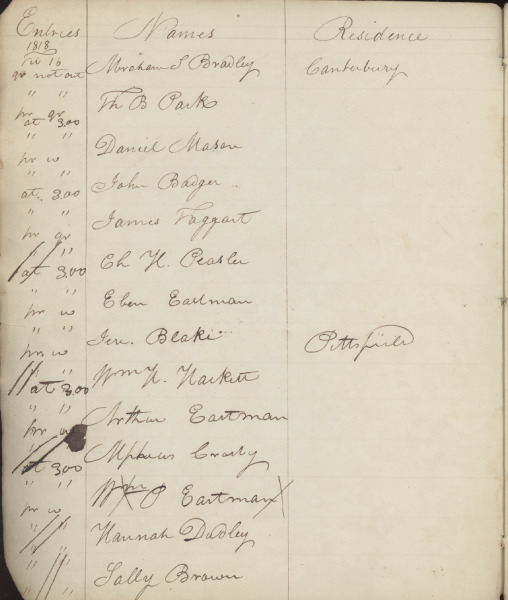 Entries Names Residence
1818
Feb 16 Abraham S Bradley Canterbury
qr not out
" " Th B Park
pr qr
at 3.00
" " Daniel Mason
pr w
John Badger
at 3.00
" " James Taggart
pr qr
" "
at 3.00 Ch H. Peaslee
" " Eben Eastman
pr w
" " Jere. Blake Pittsfield
pr w
Wm H. Haskett
at 3.00
" " Arthur Eastman
pr w
Alpheus Crosby
at 3.00
" " Wm P Eastman
pr w
" " Hannah Dudley
" " Sally Brown